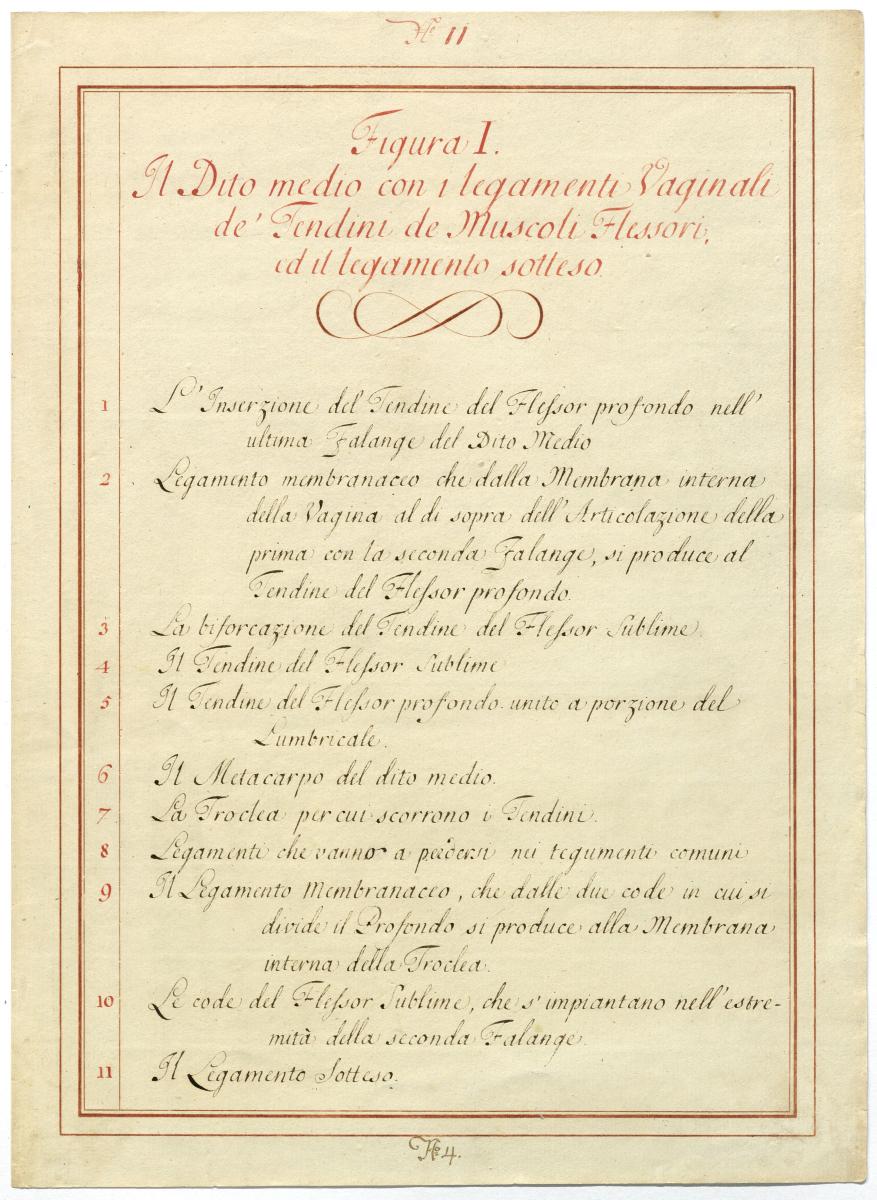 N.° 11
Figura I.
Il Dito medio con i legamenti Vaginali
de' Tendini de Muscoli Flessori,
ed il legamento sotteso.
1 L' Inserzione del Tendine del Flessor profondo nell'
ultima Falange del Dito Medio
2 Legamento membranaceo che dalla Membrana interna
della Vagina al di sopra dell' Articolazione della
prima con la seconda Falange, si produce al
Tendine del Flessor profondo.
3 La biforcazione del Tendine del Flessor Sublime.
4 Il Tendine del Flessor Sublime
5 Il Tendine del Flessor profondo unito a porzione del
Lumbricale.
6 Il Metacarpo del dito medio.
7 La Troclea per cui scorrono i Tendini.
8 Legamenti che vanno a perdersi nei tegumenti comuni
9 Il Legamento Membranaceo, che dalle due code in cui si
divide il Profondo si produce alla Membrana
interna della Troclea.
10 Le code del Flessor Sublime, che s' impiantano nell' estre-
mità della seconda Falange.
11 Il Legamento Sotteso.
N.° 4.